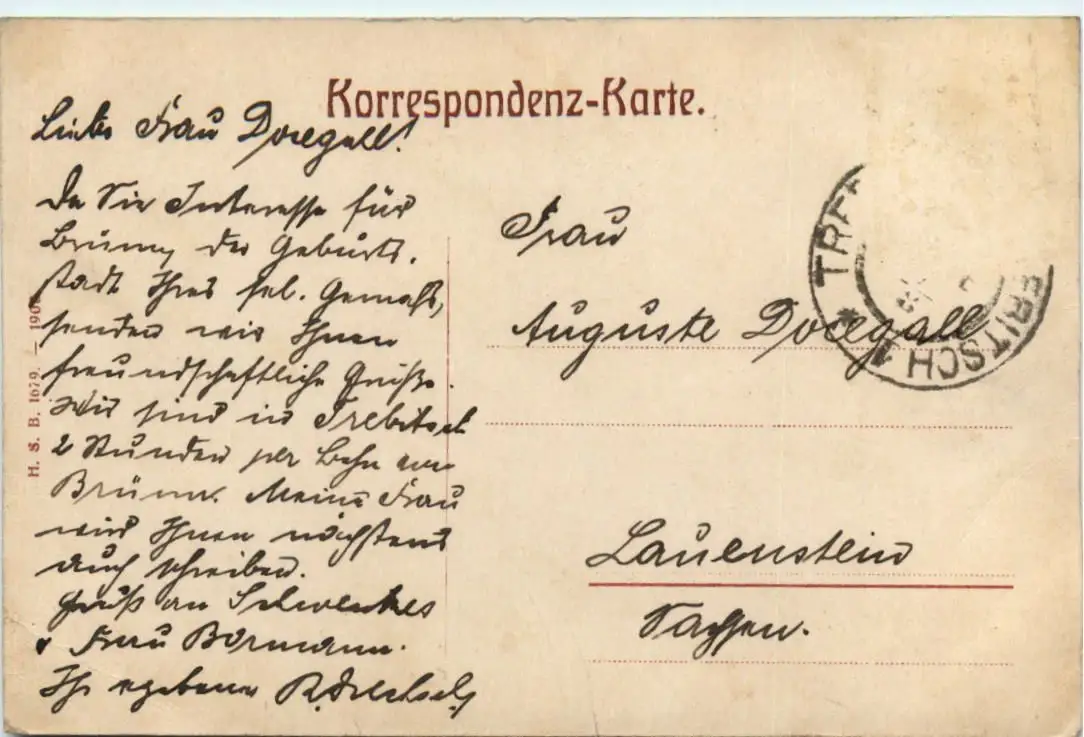 Korrespondenz-Karte.
Liebe Frau Docegall!
Da Sie Interesse für
Brünn, der Geburts-
stadt Ihres sel. Gemahls,
senden wir Ihnen
freundschaftliche Grüße.
Wir sind in Trebitsch
2 Stunden per Bahn von
Brünn. Meine Frau
wird Ihnen nächstens
auch schreiben.
Gruß an
Frau Bormann.
Ihr ergebener
Frau
Auguste Docegall
Lauenstein
Sachsen.
H. S. B. 1679. – 190
TR
ERITSCH 1